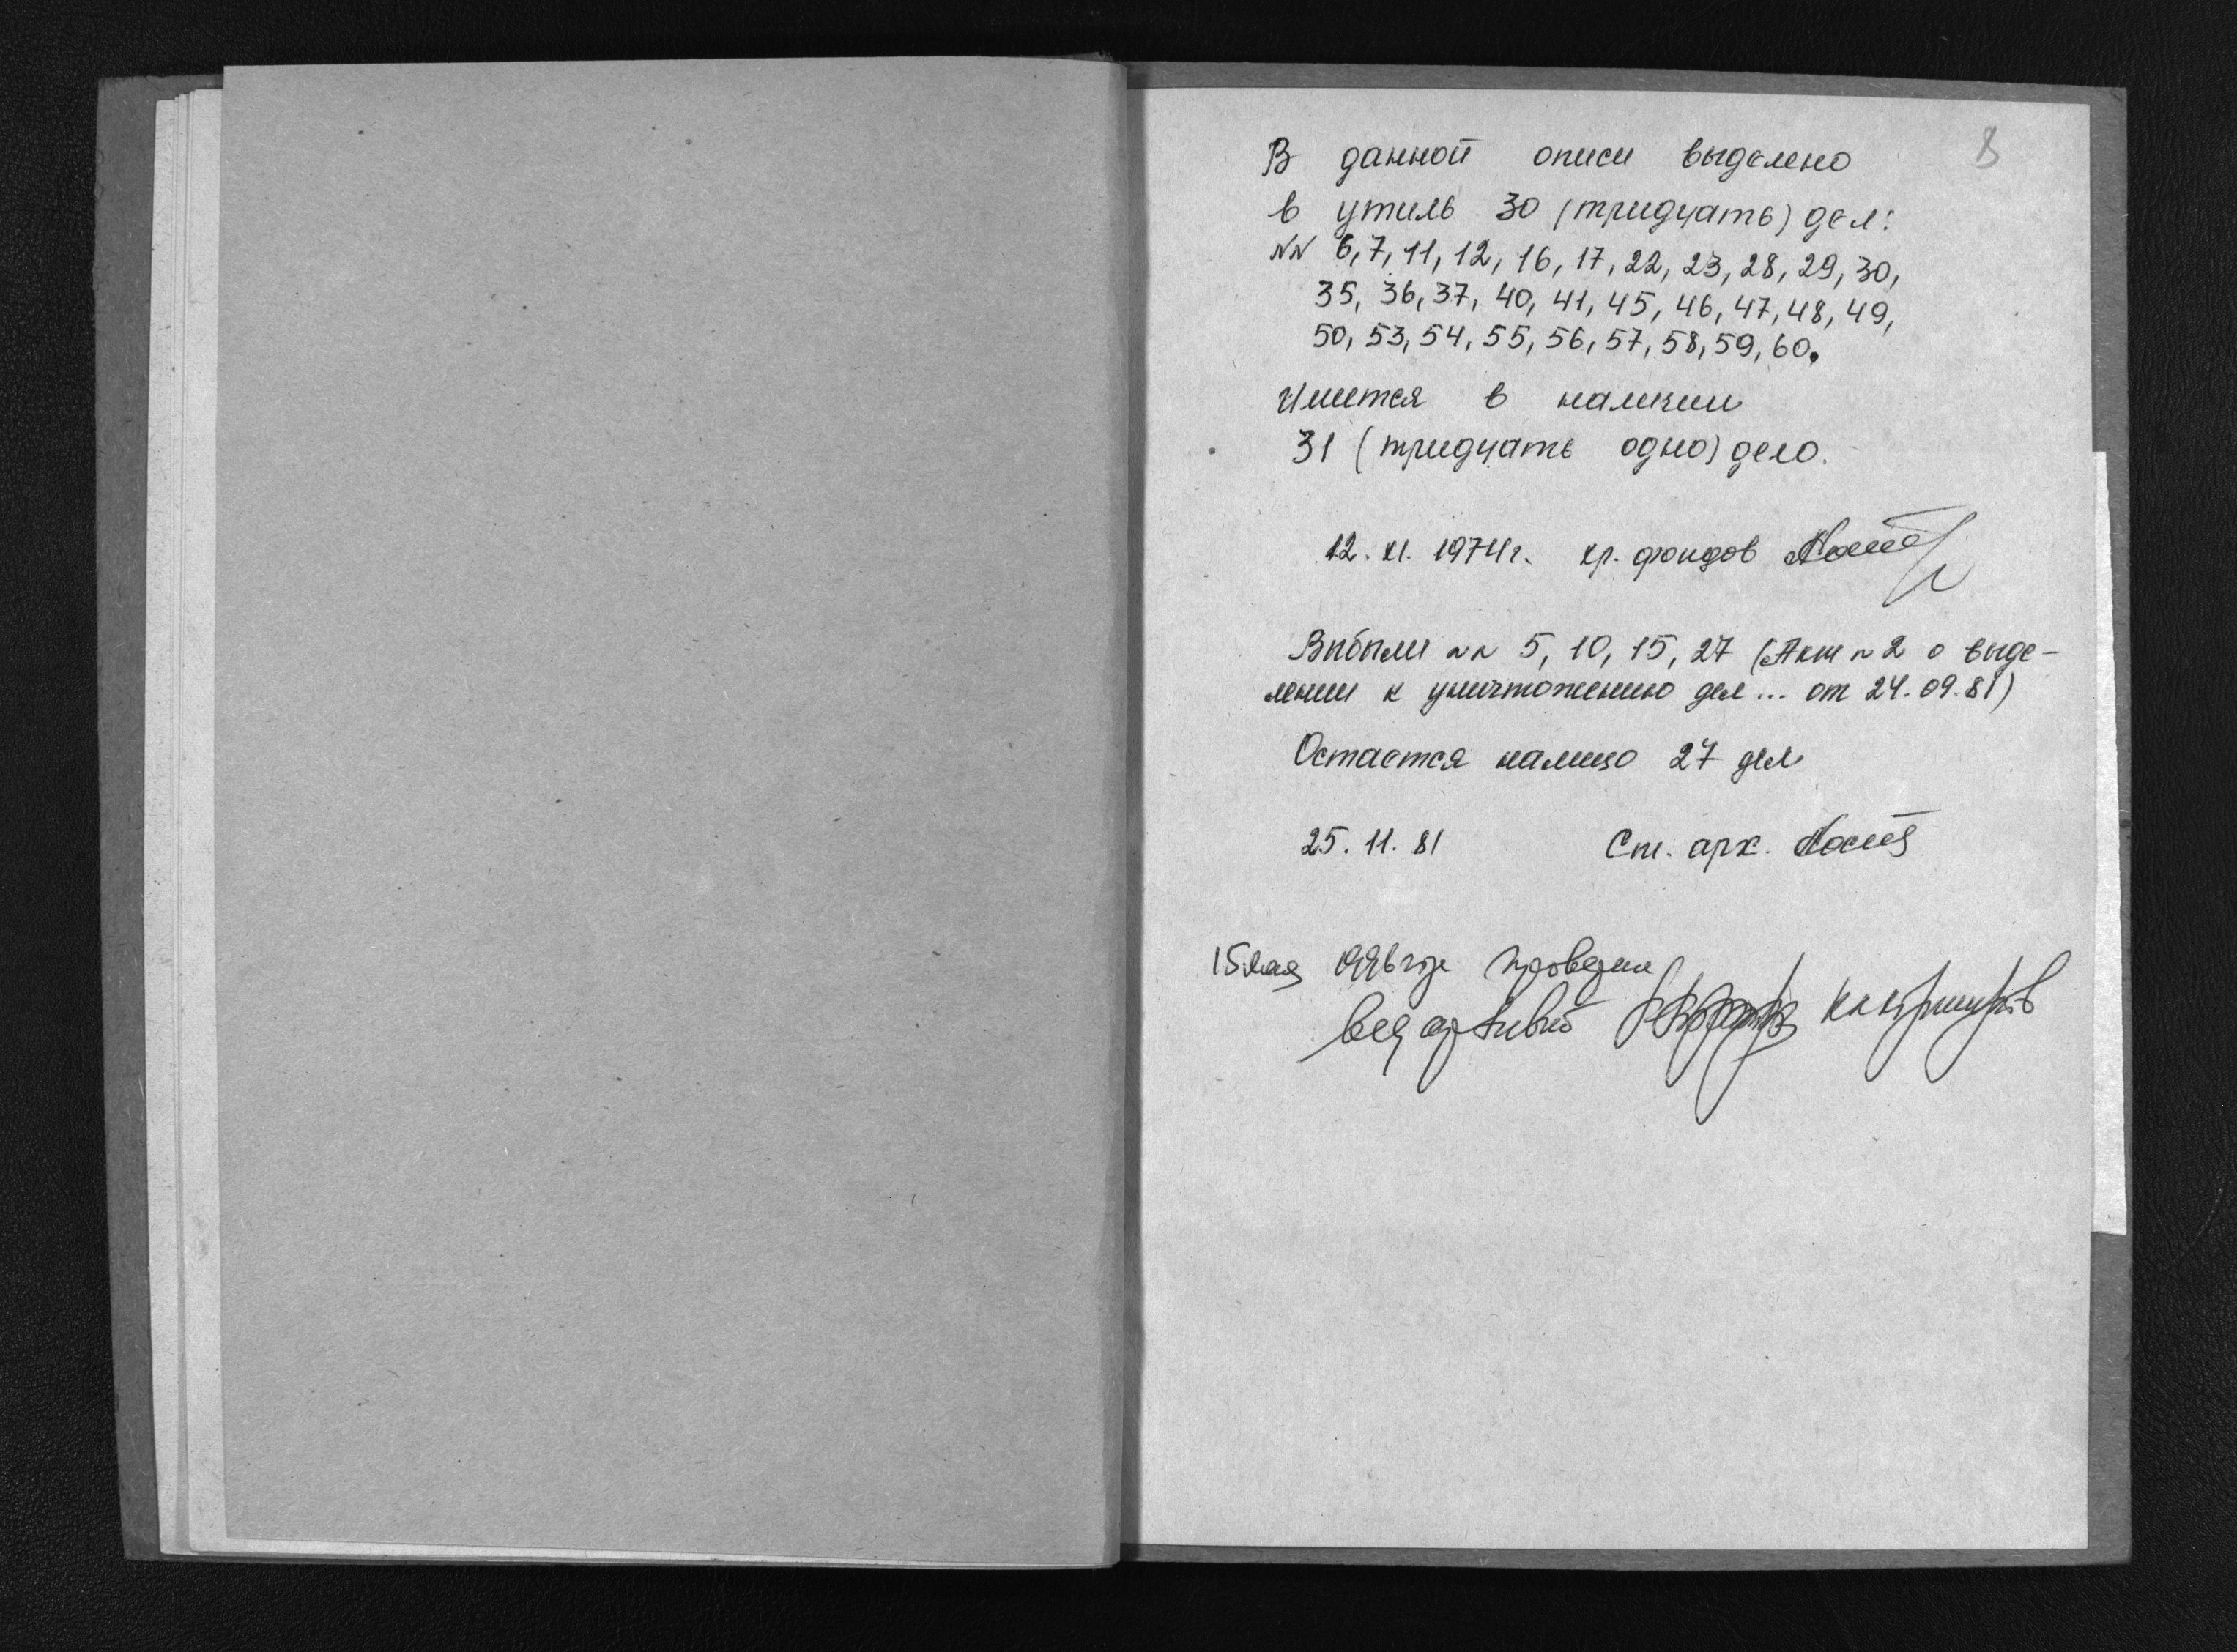 8
В данной описи выделено
в утиль 30 (тридцать) дел:
NN 6, 7, 11, 12, 16, 17, 22, 23, 28, 29, 30,
35, 36, 37, 40, 41, 45, 46, 47, 48, 49,
50, 53, 54, 55, 56, 57, 58, 59, 60.
Имеется в наличии
31 (тридцать одно) дело.
12. XI. 1974г. хр. фондов
Выбыли NN 5, 10, 15, 27 (Акт N 2 о выде-
лении к уничтожению дел... от 24.09.81)
Остается налицо 27 дел
25. 11. 81 Ст. арх.
15 мая 1996 года проведена
вед архивист